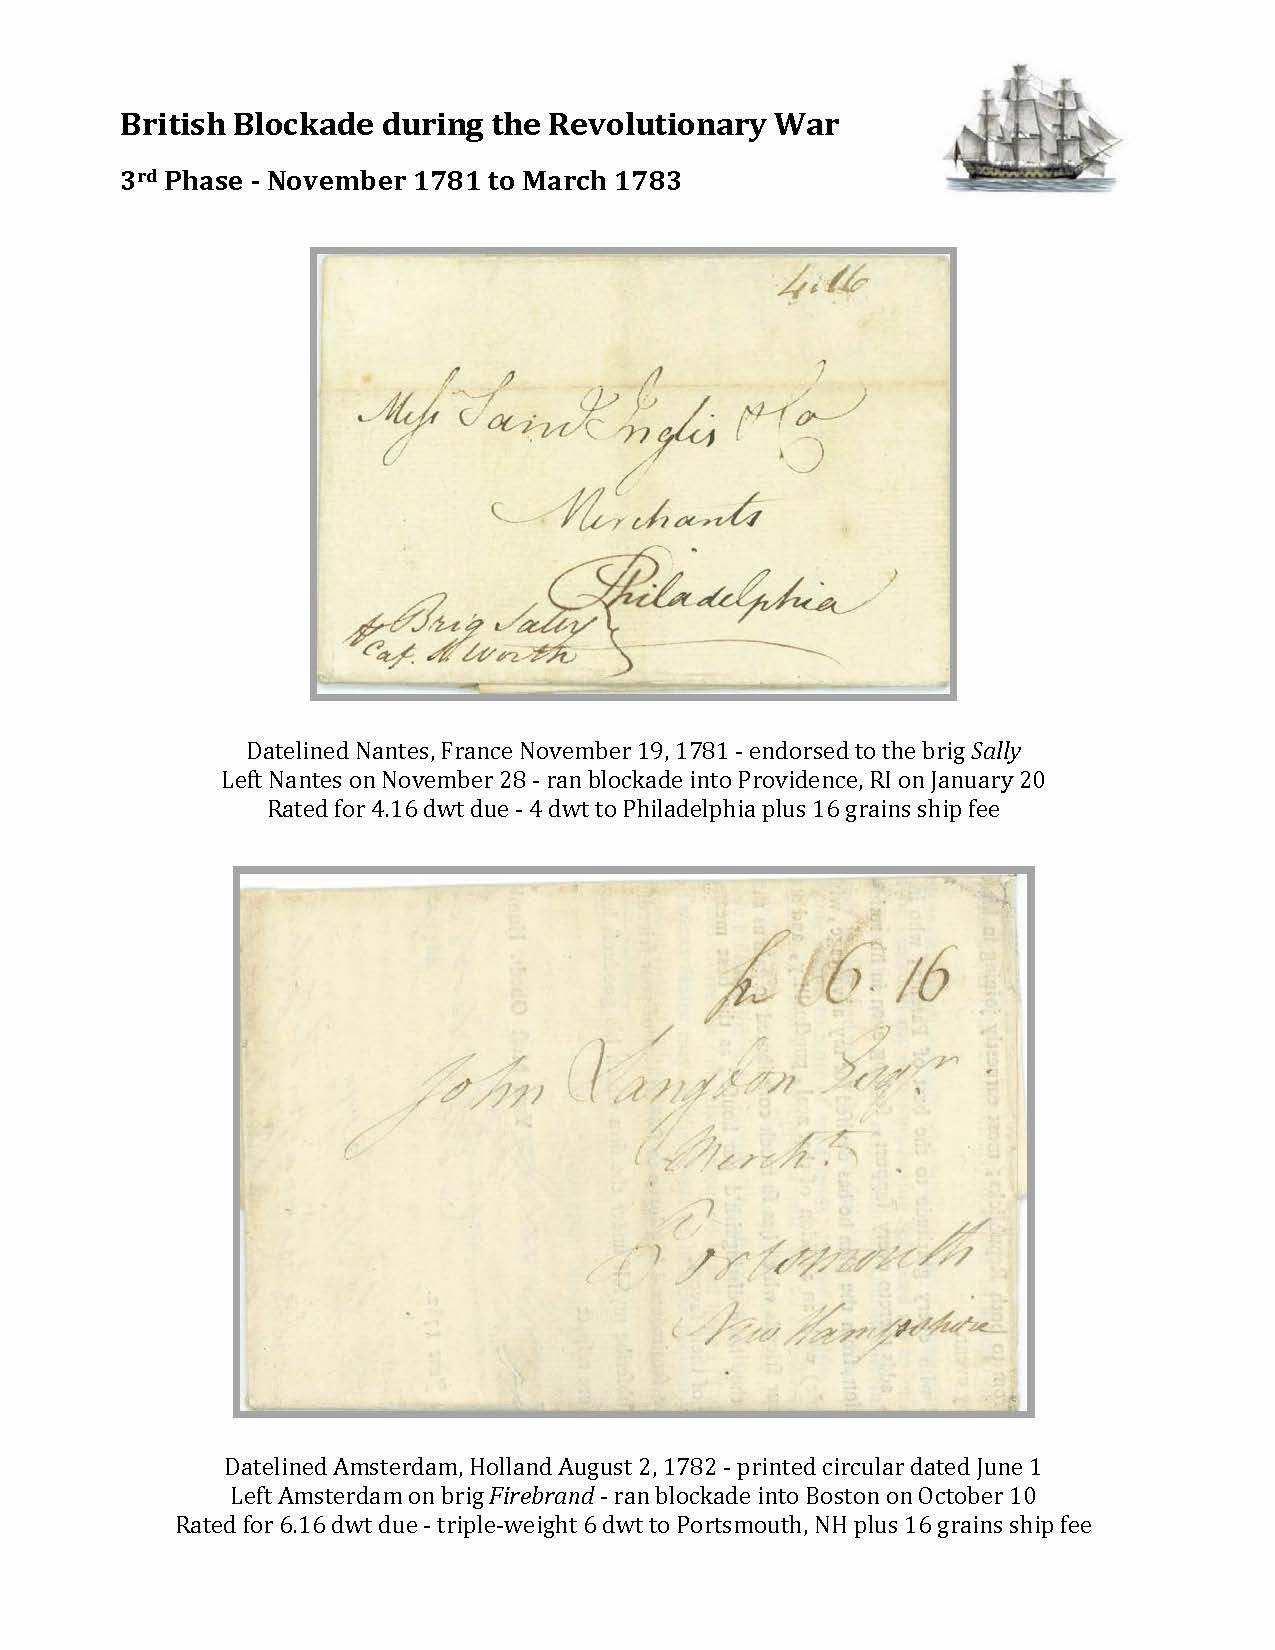 British Blockade during the Revolutionary War
3rd Phase - November 1781 to March 1783
4.16
Mess Saml Inglis & Co
Merchants
Philadelphia
Brig Sally
Cap. N. Worth
Datelined Nantes, France November 19, 1781 - endorsed to the brig Sally
Left Nantes on November 28 - ran blockade into Providence, RI on January 20
Rated for 4.16 dwt due - 4 dwt to Philadelphia plus 16 grains ship fee
6.16
John Langdon Esqr.
Mercht.
Portsmouth
New Hampshire
Datelined Amsterdam, Holland August 2, 1782 - printed circular dated June 1
Left Amsterdam on brig Firebrand - ran blockade into Boston on October 10
Rated for 6.16 dwt due - triple-weight 6 dwt to Portsmouth, NH plus 16 grains ship fee